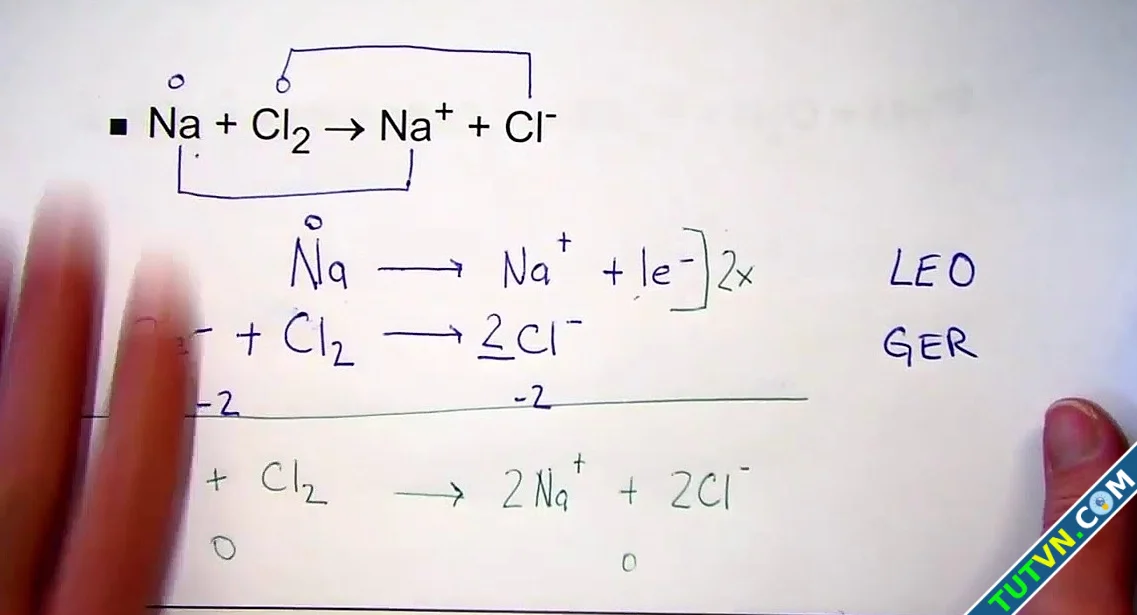 0 0
■ Na + Cl₂ → Na⁺ + Cl⁻
0
Na → Na⁺ + 1e⁻] 2x LEO
⁻ + Cl₂ → 2Cl⁻ GER
-2 -2
+ Cl₂ → 2Na⁺ + 2Cl⁻
0 0
TUTVN.COM